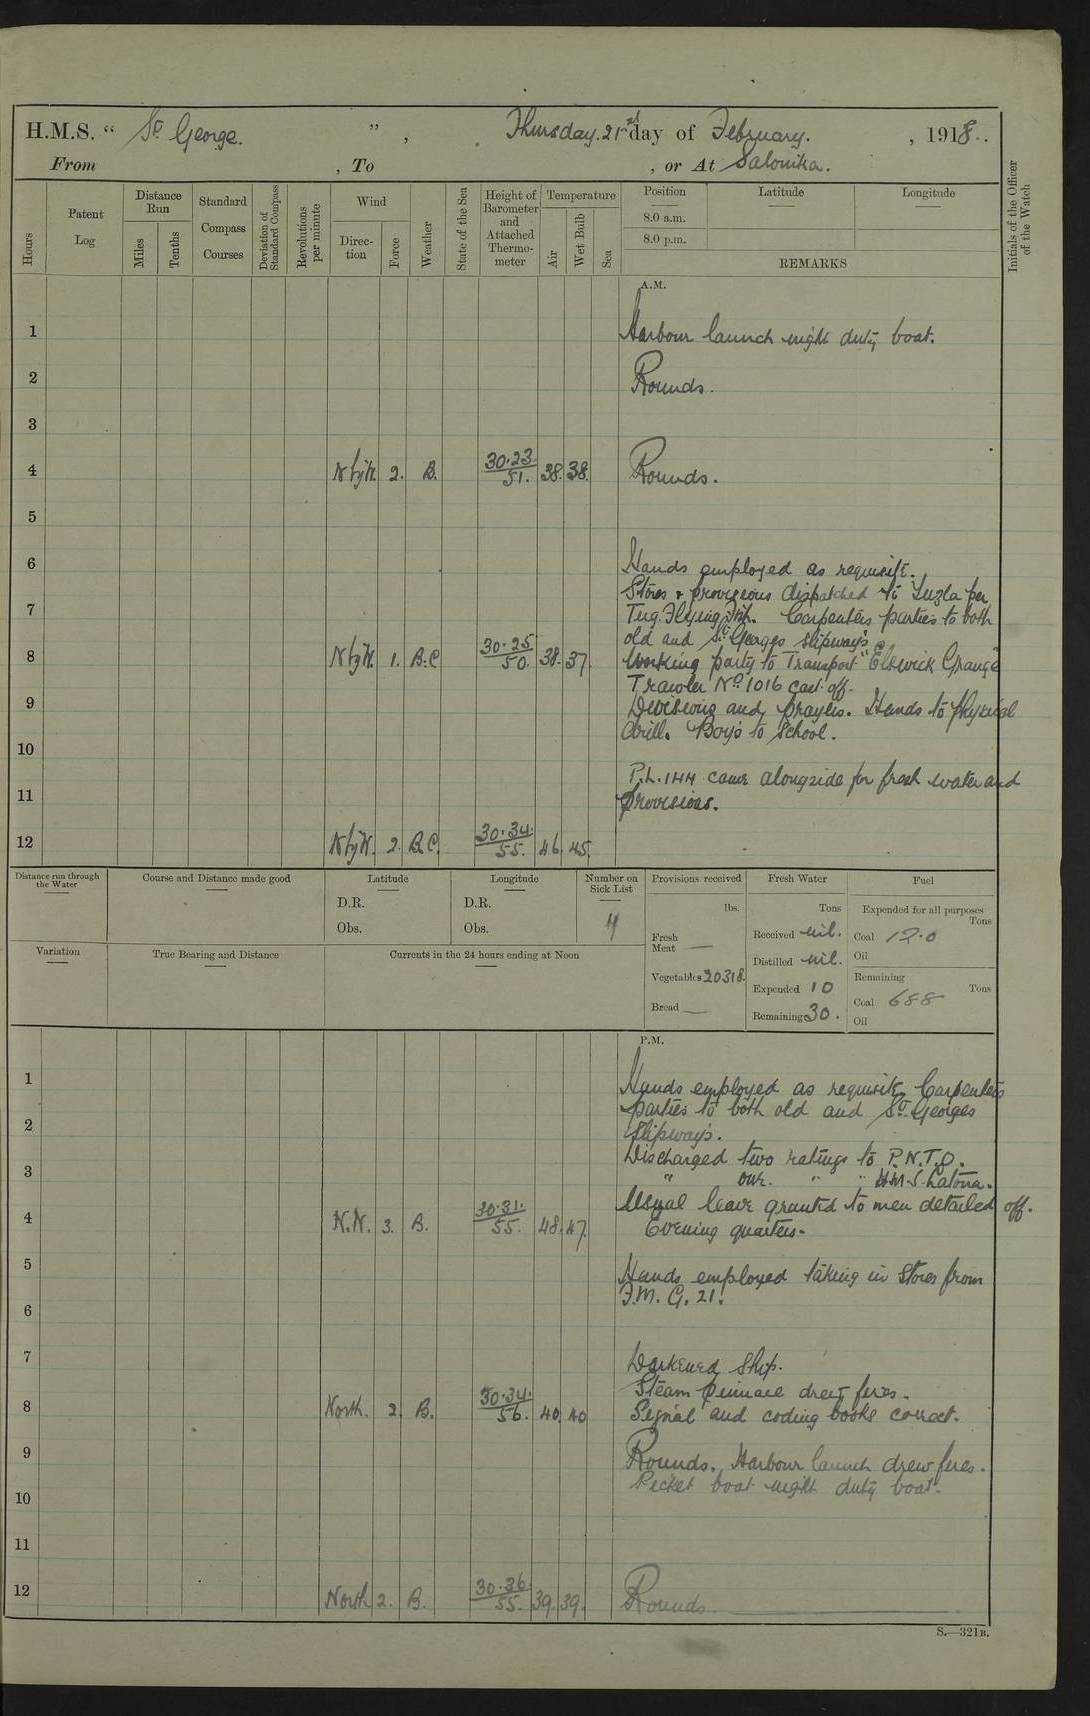 H.M.S. “ St George. ” , Thursday. 21st day of February. , 1918..
From , To , or At Salonika.
Hours
Patent Log
Distance Run
Miles
Tenths
Standard Compass Courses
Deviation of Standard Compass
Revolutions per minute
Wind
Direction
Force
Weather
State of the Sea
Height of Barometer and Attached Thermometer
Temperature
Air
Wet Bulb
Sea
Position Latitude Longitude
8.0 a.m.
8.0 p.m.
REMARKS
Initials of the Officer of the Watch
A.M.
1 Harbour launch night duty boat.
2 Rounds.
3
4 N by W. 2. B. 30.23. 51. 38. 38. Rounds.
5
6 Hands employed as requisite.
Stores & provisions dispatched to Tuzla per
7 Tug. Flying Fish. Carpenters parties to both
old and St Georges slipways.
8 N by W. 1. B.C 30.25 50. 38. 37. Working party to Transport "Elswick Grange"
Trawler No 1016 cast off.
9 Divisions and prayers. Hands to physical
drill. Boys to School.
10
P.L. 144 came alongside for fresh water and
11 provisions.
12 N by W. 2. B.C. 30.34. 55. 46. 45.
Distance run through the Water
Course and Distance made good
Latitude
D.R.
Obs.
Longitude
D.R.
Obs.
Number on Sick List
4
Provisions received
lbs.
Fresh Meat —
Vegetables 20318.
Bread —
Fresh Water
Tons
Received nil.
Distilled nil.
Expended 10
Remaining 30.
Fuel
Expended for all purposes
Tons
Coal 12.0
Oil
Remaining
Tons
Coal 688
Oil
Variation
True Bearing and Distance
Currents in the 24 hours ending at Noon
P.M.
1 Hands employed as requisite, Carpenters
parties to both old and St. Georges
2 slipways.
Discharged two ratings to P.N.T.O.
3 " one. " " H.M.S. Latona.
Usual leave granted to men detailed off.
4 N.W. 3. B. 30.31. 55. 48. 47. Evening quarters.
5 Hands employed taking in stores from
F.M. G. 21.
6
7 Darkened Ship.
Steam pinnace drew fires.
8 North. 2. B. 30.34. 56. 40. 40 Signal and coding books correct.
9 Rounds. Harbour launch drew fires.
Picket boat night duty boat.
10
11
12 North 2. B. 30.36. 55. 39. 39. Rounds.
S.—321B.